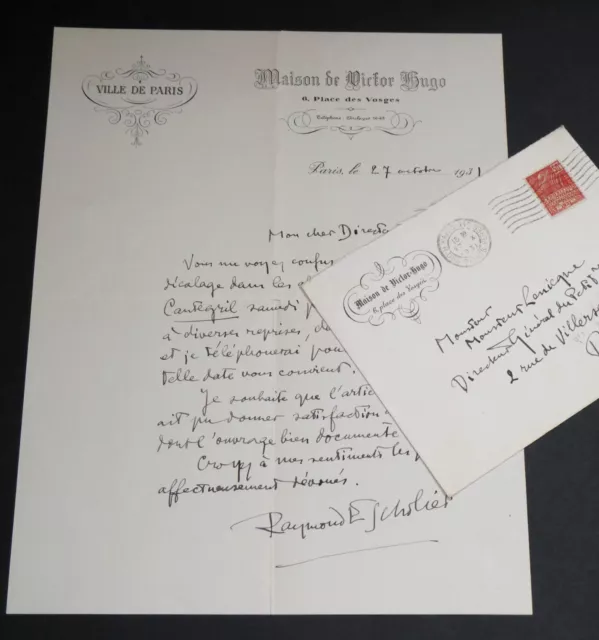 VILLE DE PARIS
Maison de Victor Hugo
6, Place des Vosges
Paris, le 27 octobre 1931
Mon cher Direct
Vous me voyez confus
décalage dans les
Cantegril samedi
à diverses reprises, de
et je téléphonerai pour
telle date vous convient.
Je souhaite que l'artic
ait pu donner satisfaction
dont l'ouvrage bien documenté
Croyez à mes sentiments les
affectueusement dévoués.
Raymond Escholier
Maison de Victor Hugo
6, place des Vosges
Monsieur
Monsieur
Directeur Général du Petit
2 rue de Villers